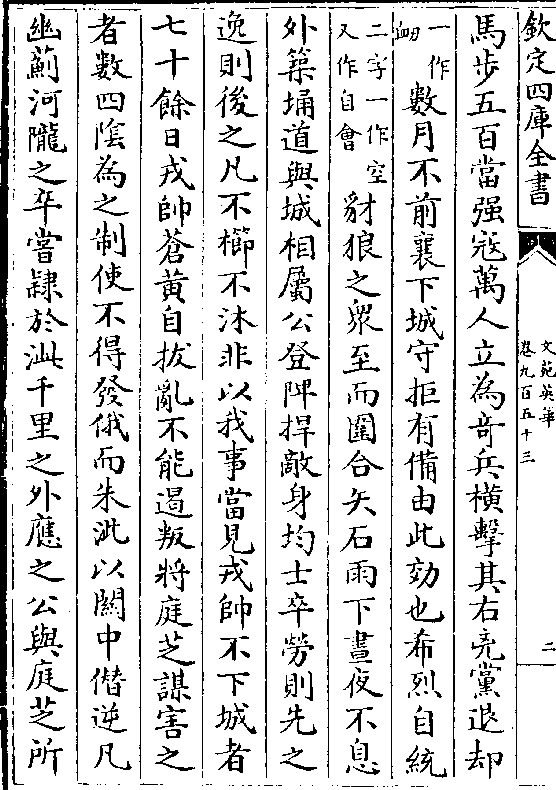 欽定四庫全書
文苑英華
卷九百五十三
二
馬步五百當强寇萬人立為奇兵横擊其右堯黨退却
一作
衂
數月不前襄下城守拒有備由此効也希烈自統
二字一作空
又作自會
豺狼之衆至而圍合矢石雨下晝夜不息
外築埇道與城相屬公登陴捍敵身均士卒勞則先之
逸則後之凡不櫛不沐非以我事當見戎帥不下城者
七十餘日戎帥蒼黄自拔亂不能遏叛將庭芝謀害之
者數四陰為之制使不得發俄而朱泚以關中僣逆凡
幽薊河隴之卒嘗隸於泚千里之外應之公與庭芝所